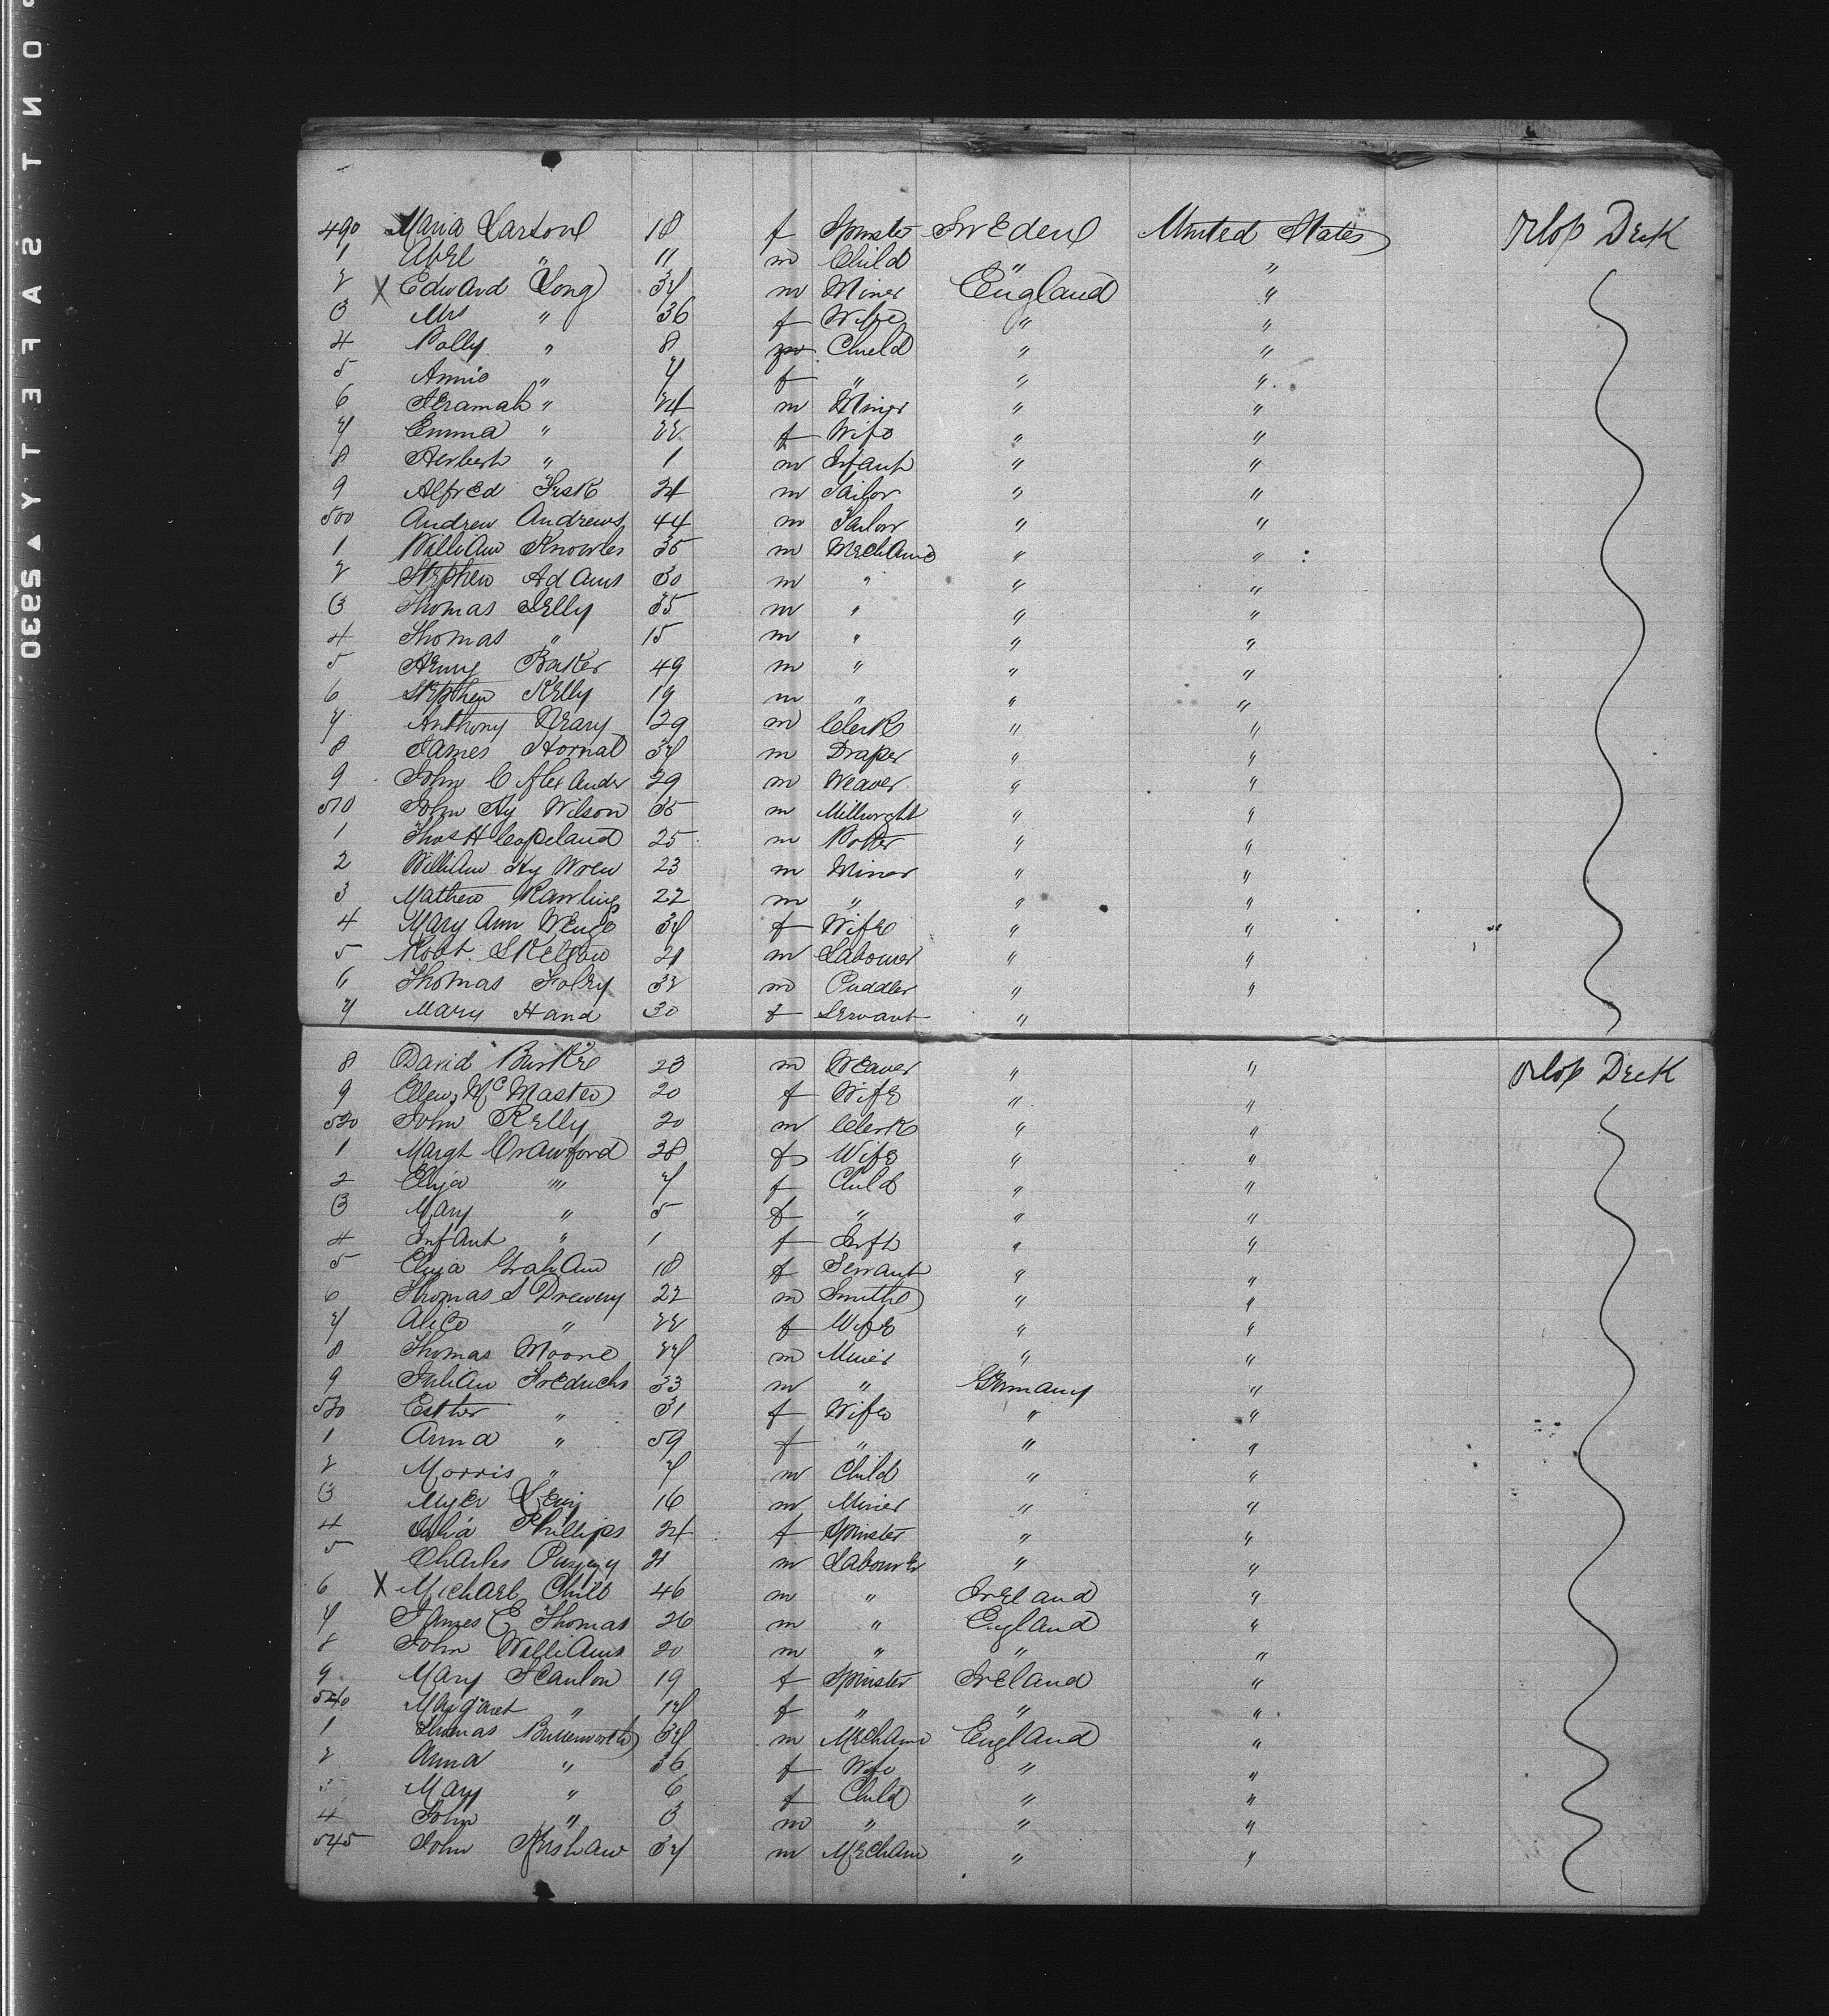 490 Maria Larson 18 f Spinster Sweden United States Orlop Deck
1 Abel " 11 m Child " "
2 X Edward Long 37 m Miner England "
3 Mrs " 36 f Wife " "
4 Polly " 8 m Child " "
5 Annie " 7 f " " "
6 Jeramah " 24 m Miner " "
7 Emma " 22 f Wife " "
8 Herbert " 1 m Infant " "
9 Alfred Fisk 24 m Sailor " "
500 Andrew Andrews 44 m Tailor " "
1 William Knowles 35 m Mechanic " "
2 Stephen Adams 30 m " " "
3 Thomas 35 m " " "
4 Thomas " 15 m " " "
5 Henry Baker 49 m " " "
6 Stephen Kelly 19 m " " "
7 Anthony 29 m Clerk " "
8 James Hornal 37 m Draper " "
9 John C Alexander 29 m Weaver " "
510 John Hy Wilson 35 m Millwright " "
1 Thos H Copeland 25 m Potter " "
2 William Hy Wren 23 m Miner " "
3 Mathew Rawling 22 m " " "
4 Mary Ann 37 f Wife " "
5 Robt. 21 m Labourer " "
6 Thomas Foley 32 m Puddler " "
7 Mary Hand 30 f Servant "
8 David Burke 23 m Weaver " " Orlop Deck
9 Ellen McMaster 20 f Wife " "
520 John Kelly 20 m Clerk " "
1 Margt Crawford 28 f Wife " "
2 Eliza "" 7 f Child " "
3 Mary " 5 f " " "
4 Infant " 1 f Inft " "
5 Eliza Graham 18 f Servant " "
6 Thomas S Drewery 22 m Smith " "
7 Alice " 22 f Wife " "
8 Thomas Moore 27 m Miner " "
9 Julian Fredrichs 33 m " Germany "
530 Esther " 31 f Wife " "
1 Anna " 59 f " " "
2 Morris " 7 m Child " "
3 Myer Levy 16 m Miner " "
4 Julia Phillips 24 f Spinster " "
5 Charles 21 m Labourer " "
6 X Michael Child 46 m " Ireland "
7 James E Thomas 26 m " England "
8 John Williams 20 m " " "
9 Mary Scanlon 19 f Spinster Ireland "
540 Margaret " 17 f " " "
1 Thomas Butterworth 37 m Mechanic England "
2 Anna " 36 f Wife " "
3 Mary " 6 f Child " "
4 John " 3 m " " "
545 John Kershaw 37 m Mechanic " "
SAFETY ▲ 25930